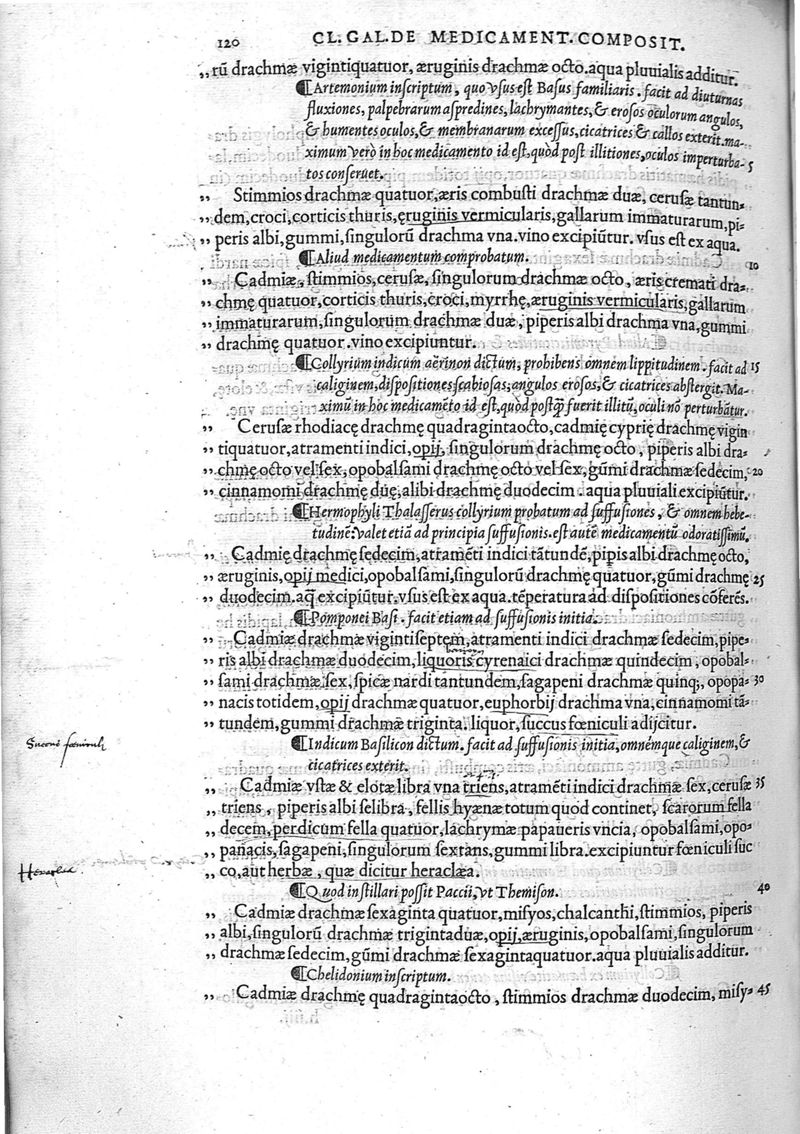 120 CL. GAL. DE MEDICAMENT. COMPOSIT.
„ rū drachmæ vigintiquatuor, æruginis drachmæ octo. aqua pluuialis additur.
¶Artemonium inſcriptum, quo vſus eſt Baſus familiaris. facit ad diuturnas
fluxiones, palpebrarum aſpredines, lachrymantes, & eroſos oculorum angulos,
& humentes oculos, & membranarum exceſſus, cicatrices & callos exterit. ma-
ximum verò in hoc medicamento id eſt, quòd poſt illitiones, oculos imperturba- 5
tos conſeruet.
„ Stimmios drachmæ quatuor, æris combuſti drachmæ duæ, ceruſæ tantun-
„ dem, croci, corticis thuris, ęruginis vermicularis, gallarum immaturarum, pi-
„ peris albi, gummi, ſingulorū drachma vna. vino excipiūtur. vſus eſt ex aqua.
¶Aliud medicamentum comprobatum. 10
„ Cadmiæ, ſtimmios, ceruſæ, ſingulorum drachmæ octo, æris cremati dra-
„ chmę quatuor, corticis thuris, croci, myrrhę, æruginis vermicularis, gallarum
„ immaturarum, ſingulorum drachmæ duæ, piperis albi drachma vna, gummi
„ drachmę quatuor. vino excipiuntur.
¶Collyrium indicum aërinon dictum, prohibens omnem lippitudinem. facit ad 15
caliginem, diſpoſitiones ſcabioſas, angulos eroſos, & cicatrices abſtergit. Ma-
ximū in hoc medicamēto id eſt, quòd poſtq̄ fuerit illitū, oculi nō perturbātur.
„ Ceruſæ rhodiacę drachmę quadragintaocto, cadmię cyprię drachmę vigin
„ tiquatuor, atramenti indici, opij, ſingulorum drachmę octo, piperis albi dra-
„ chmę octo vel ſex, opobalſami drachmę octo vel ſex, gūmi drachmæ ſedecim, 20
„ cinnamomi drachmę duę, alibi drachmę duodecim. aqua pluuiali excipiūtur.
¶Hermophyli Thalaſſerus collyrium probatum ad ſuffuſiones, & omnem hebe-
tudinē. valet etiā ad principia ſuffuſionis. eſt autē medicamentū odoratiſſimū.
„ Cadmię drachmę ſedecim, atramēti indici tātundē, pipis albi drachmę octo,
„ æruginis, opij medici, opobalſami, ſingulorū drachmę quatuor, gūmi drachmę 25
„ duodecim. aq̄ excipiūtur. vſus eſt ex aqua. tēperatura ad diſpoſitiones cōferēs.
¶Pomponei Baſi. facit etiam ad ſuffuſionis initia.
„ Cadmiæ drachmæ vigintiſeptem, atramenti indici drachmæ ſedecim, pipe-
„ ris albi drachmæ duodecim, liquoris cyrenaici drachmæ quindecim, opobal-
„ ſami drachmæ ſex, ſpicæ nardi tantundem, ſagapeni drachmæ quinq;, opopa- 30
„ nacis totidem, opij drachmæ quatuor, euphorbij drachma vna, cinnamomi tā-
„ tundem, gummi drachmæ triginta. liquor, ſuccus fœniculi adijcitur.
Succus fœniculi
¶Indicum Baſilicon dictum. facit ad ſuffuſionis initia, omnémque caliginem, &
cicatrices exterit.
„ Cadmiæ vſtæ & elotæ libra vna triens, atramēti indici drachmæ ſex, ceruſæ 35
„ triens, piperis albi ſelibra, fellis hyænæ totum quod continet, ſcarorum fella
„ decem, perdicum fella quatuor, lachrymæ papaueris vncia, opobalſami, opo-
„ panacis, ſagapeni, ſingulorum ſextans, gummi libra. excipiuntur fœniculi ſuc
„ co, aut herbæ, quæ dicitur heraclæa.
Heraclea
¶Quod inſtillari poſſit Paccii, vt Themiſon. 40
„ Cadmiæ drachmæ ſexaginta quatuor, miſyos, chalcanthi, ſtimmios, piperis
„ albi, ſingulorū drachmæ trigintaduæ, opij, æruginis, opobalſami, ſingulorum
„ drachmæ ſedecim, gūmi drachmæ ſexagintaquatuor. aqua pluuialis additur.
¶Chelidonium inſcriptum.
„ Cadmiæ drachmę quadragintaocto, ſtimmios drachmæ duodecim, miſy- 45